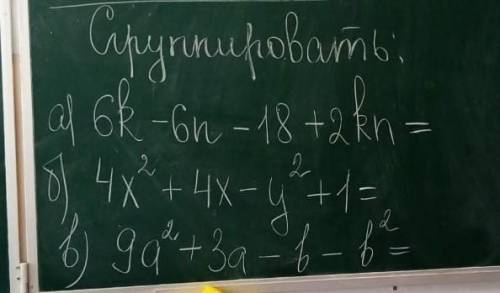 Сгруппировать:
а) 6k - 6n - 18 + 2kn =
б) 4x² + 4x - y² + 1 =
в) 9a² + 3a - b - b² =